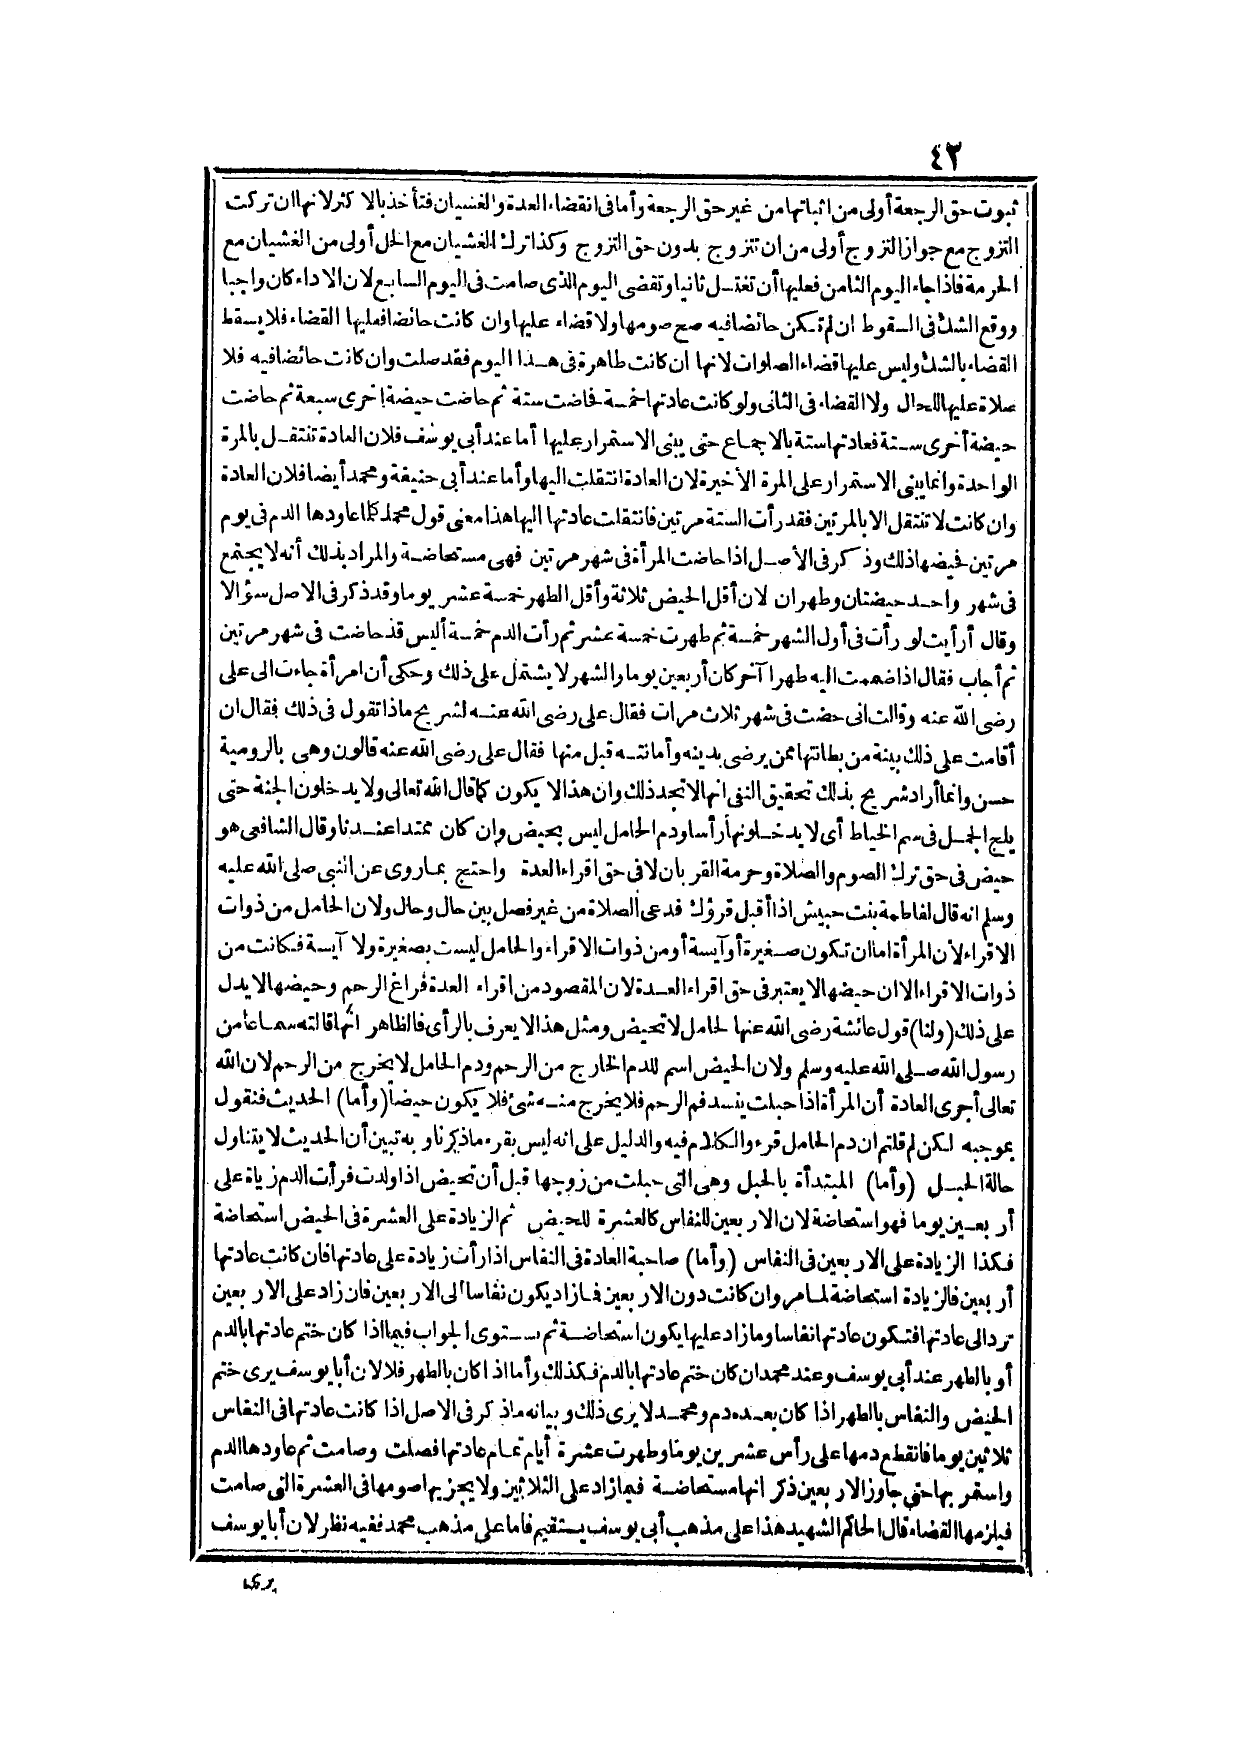 ٤٢
ثبوت حق الرجعة أولى من اثباتها من غير حق الرجعة وأما فى انقضاء العدة والغشيان فتأخذ بالاكثر لانها ان تركت
التزوج مع جواز التزوج أولى من ان تتزوج بدون حق التزوج وكذا ترك الغشيان مع الحل أولى من الغشيان مع
الحرمة فاذا جاء اليوم الثامن فعليها أن تغتسل ثانيا وتقضى اليوم الذى صامت فى اليوم السابع لان الاداء كان واجبا
ووقع الشك فى السقوط ان لم تكن حائضا فيه صح صومها ولا قضاء عليها وان كانت حائضا فعليها القضاء فلا يسقط
القضاء بالشك وليس عليها قضاء الصلوات لانها ان كانت طاهرة فى هذا اليوم فقد صلت وان كانت حائضا فيه فلا
صلاة عليها للحال ولا القضاء فى الثانى ولو كانت عادتها خمسة فحاضت ستة ثم حاضت حيضة اخرى سبعة ثم حاضت
حيضة أخرى ستة فعادتها ستة بالاجماع حتى يبنى الاستمرار عليها أما عند أبى يوسف فلان العادة تنتقل بالمرة
الواحدة وانما يبنى الاستمرار على المرة الأخيرة لان العادة انتقلت اليها وأما عند أبى حنيفة ومحمد أيضا فلان العادة
وان كانت لا تنتقل الا بالمرتين فقد رأت الستة مرتين فانتقلت عادتها اليها هذا معنى قول محمد كلما عاودها الدم فى يوم
مرتين فحيضها ذلك وذكر فى الأصل اذا حاضت المرأة فى شهر مرتين فهى مستحاضة والمراد بذلك أنه لا يجتمع
فى شهر واحد حيضتان وطهران لان أقل الحيض ثلاثة وأقل الطهر خمسة عشر يوما وقد ذكر فى الاصل سؤالا
وقال أرأيت لو رأت فى أول الشهر خمسة ثم طهرت خمسة عشر ثم رأت الدم خمسة أليس قد حاضت فى شهر مرتين
ثم أجاب فقال اذا ضممت اليه طهرا آخر كان أربعين يوما والشهر لا يشتمل على ذلك وحكى أن امرأة جاءت الى على
رضى الله عنه وقالت انى حضت فى شهر ثلاث مرات فقال على رضى الله عنه لشريح ماذا تقول فى ذلك فقال ان
أقامت على ذلك بينة من بطانتها ممن يرضى بدينه وأمانته قبل منها فقال على رضى الله عنه قالون وهى بالرومية
حسن وانما أراد شريح بذلك تحقيق النفى انها لا تجد ذلك وان هذا لا يكون كما قال الله تعالى ولا يدخلون الجنة حتى
يلج الجمل فى سم الخياط أى لا يدخلونها رأسا ودم الحامل ليس بحيض وان كان ممتدا عندنا وقال الشافعى هو
حيض فى حق ترك الصوم والصلاة وحرمة القربان لا فى حق اقراء العدة واحتج بما روى عن النبى صلى الله عليه
وسلم انه قال لفاطمة بنت حبيش اذا أقبل قرؤك فدعى الصلاة من غير فصل بين حال وحال ولان الحامل من ذوات
الاقراء لأن المرأة اما ان تكون صغيرة أو آيسة أو من ذوات الاقراء والحامل ليست بصغيرة ولا آيسة فكانت من
ذوات الاقراء الا ان حيضها لا يعتبر فى حق اقراء العدة لان المقصود من اقراء العدة فراغ الرحم وحيضها لا يدل
على ذلك (ولنا) قول عائشة رضى الله عنها الحامل لا تحيض ومثل هذا لا يعرف بالرأى فالظاهر انها قالته سماعا من
رسول الله صلى الله عليه وسلم ولان الحيض اسم للدم الخارج من الرحم ودم الحامل لا يخرج من الرحم لان الله
تعالى أجرى العادة أن المرأة اذا حبلت ينسد فم الرحم فلا يخرج منه شئ فلا يكون حيضا (وأما) الحديث فنقول
بموجبه لكن لم قلتم ان دم الحامل قرء والكلام فيه والدليل على انه ليس بقرء ما ذكرنا وبه تبين أن الحديث لا يتناول
حالة الحبل (وأما) المبتدأة بالحبل وهى التى حبلت من زوجها قبل أن تحيض اذا ولدت فرأت الدم زيادة على
أربعين يوما فهو استحاضة لان الاربعين للنفاس كالعشرة للحيض ثم الزيادة على العشرة فى الحيض استحاضة
فكذا الزيادة على الاربعين فى النفاس (وأما) صاحبة العادة فى النفاس اذا رأت زيادة على عادتها فان كانت عادتها
أربعين فالزيادة استحاضة لما مر وان كانت دون الاربعين فما زاد يكون نفاسا الى الاربعين فان زاد على الاربعين
ترد الى عادتها فتكون عادتها نفاسا وما زاد عليها يكون استحاضة ثم يستوى الجواب فيما اذا كان ختم عادتها بالدم
أو بالطهر عند أبى يوسف وعند محمد ان كان ختم عادتها بالدم فكذلك وأما اذا كان بالطهر فلا لان أبا يوسف يرى ختم
الحيض والنفاس بالطهر اذا كان بعده دم ومحمد لا يرى ذلك وبيانه ما ذكر فى الاصل اذا كانت عادتها فى النفاس
ثلاثين يوما فانقطع دمها على رأس عشرين يوما وطهرت عشرة أيام تمام عادتها فصلت وصامت ثم عاودها الدم
واستمر بها حتى جاوز الاربعين ذكر انها مستحاضة فيما زاد على الثلاثين ولا يجزيها صومها فى العشرة التى صامت
فيلزمها القضاء قال الحاكم الشهيد هذا على مذهب أبى يوسف يستقيم فاما على مذهب محمد ففيه نظر لان أبا يوسف
يرى